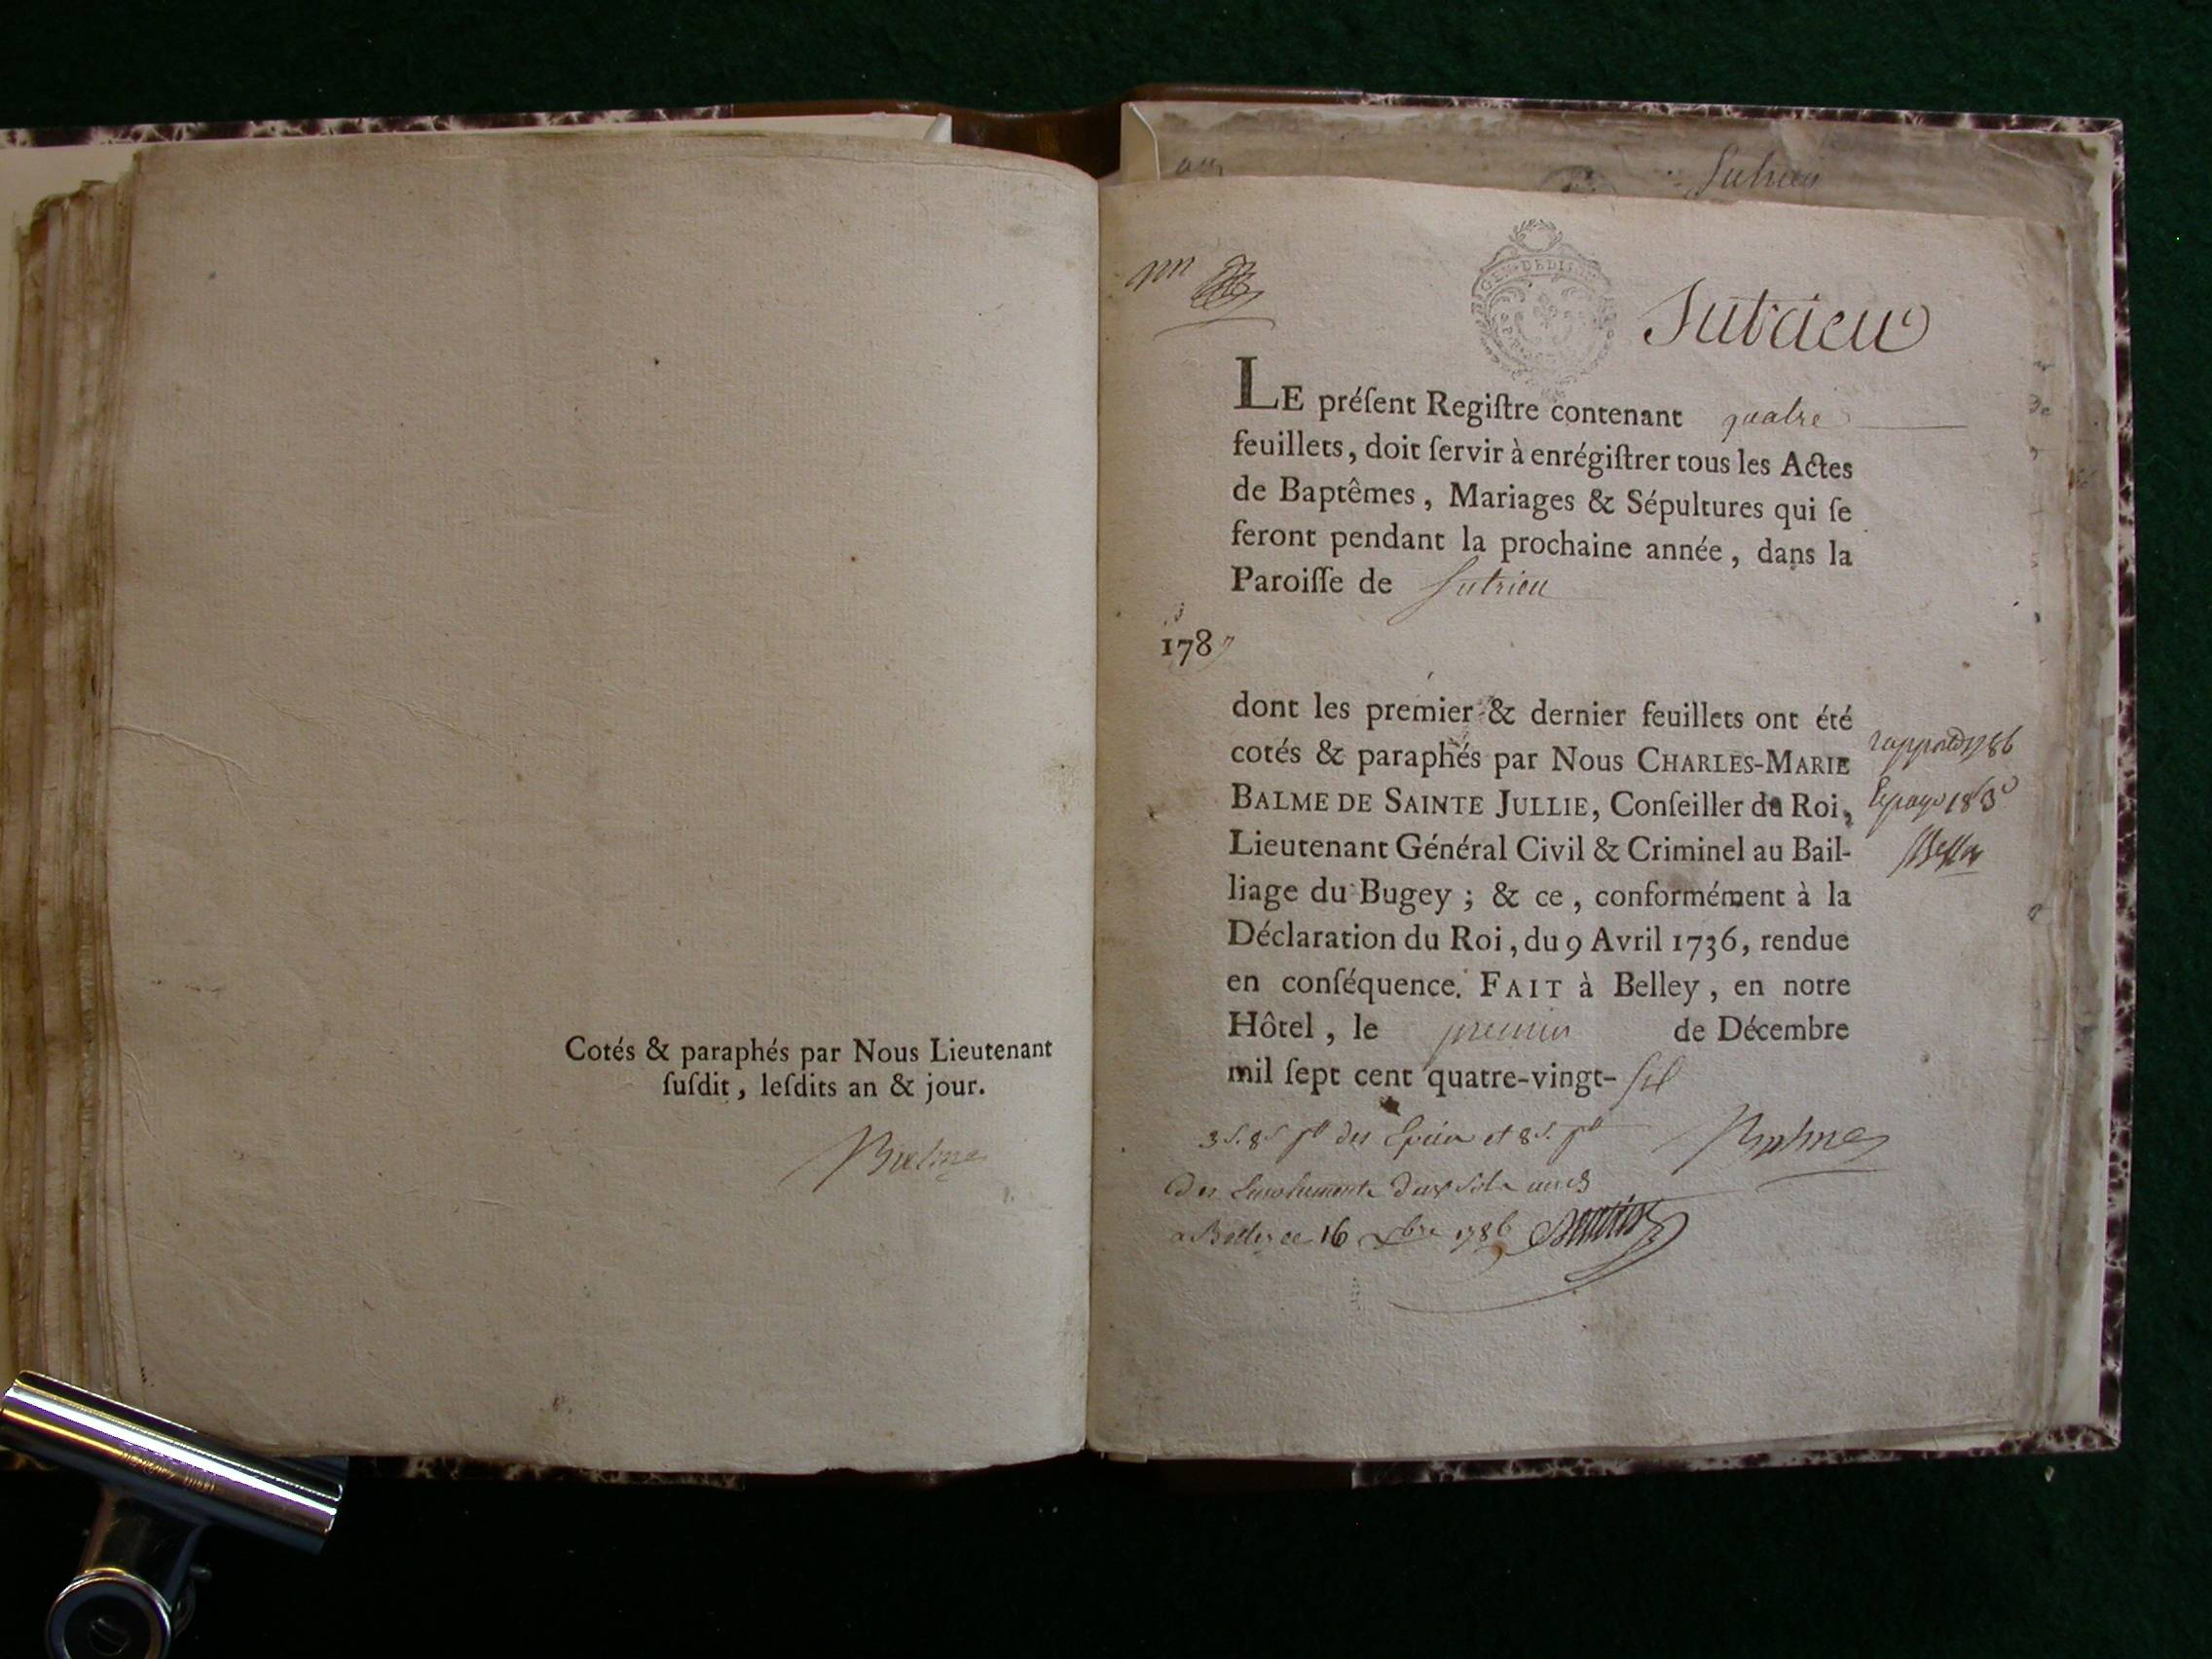 Cotés & paraphés par Nous Lieutenant
ſuſdit, leſdits an & jour.
Balme
Sutrieu
Sutrieu
LE préſent Regiſtre contenant quatre
feuillets, doit ſervir à enrégiſtrer tous les Actes
de Baptêmes, Mariages & Sépultures qui ſe
feront pendant la prochaine année, dans la
Paroiſſe de Sutrieu
1787
dont les premier & dernier feuillets ont été
cotés & paraphés par Nous CHARLES-MARIE
BALME DE SAINTE JULLIE, Conſeiller du Roi,
Lieutenant Général Civil & Criminel au Bail-
liage du Bugey ; & ce, conformément à la
Déclaration du Roi, du 9 Avril 1736, rendue
en conſéquence. FAIT à Belley, en notre
Hôtel, le premier de Décembre
mil ſept cent quatre-vingt-six
Balme
a Belley ce 16 xbre 1786